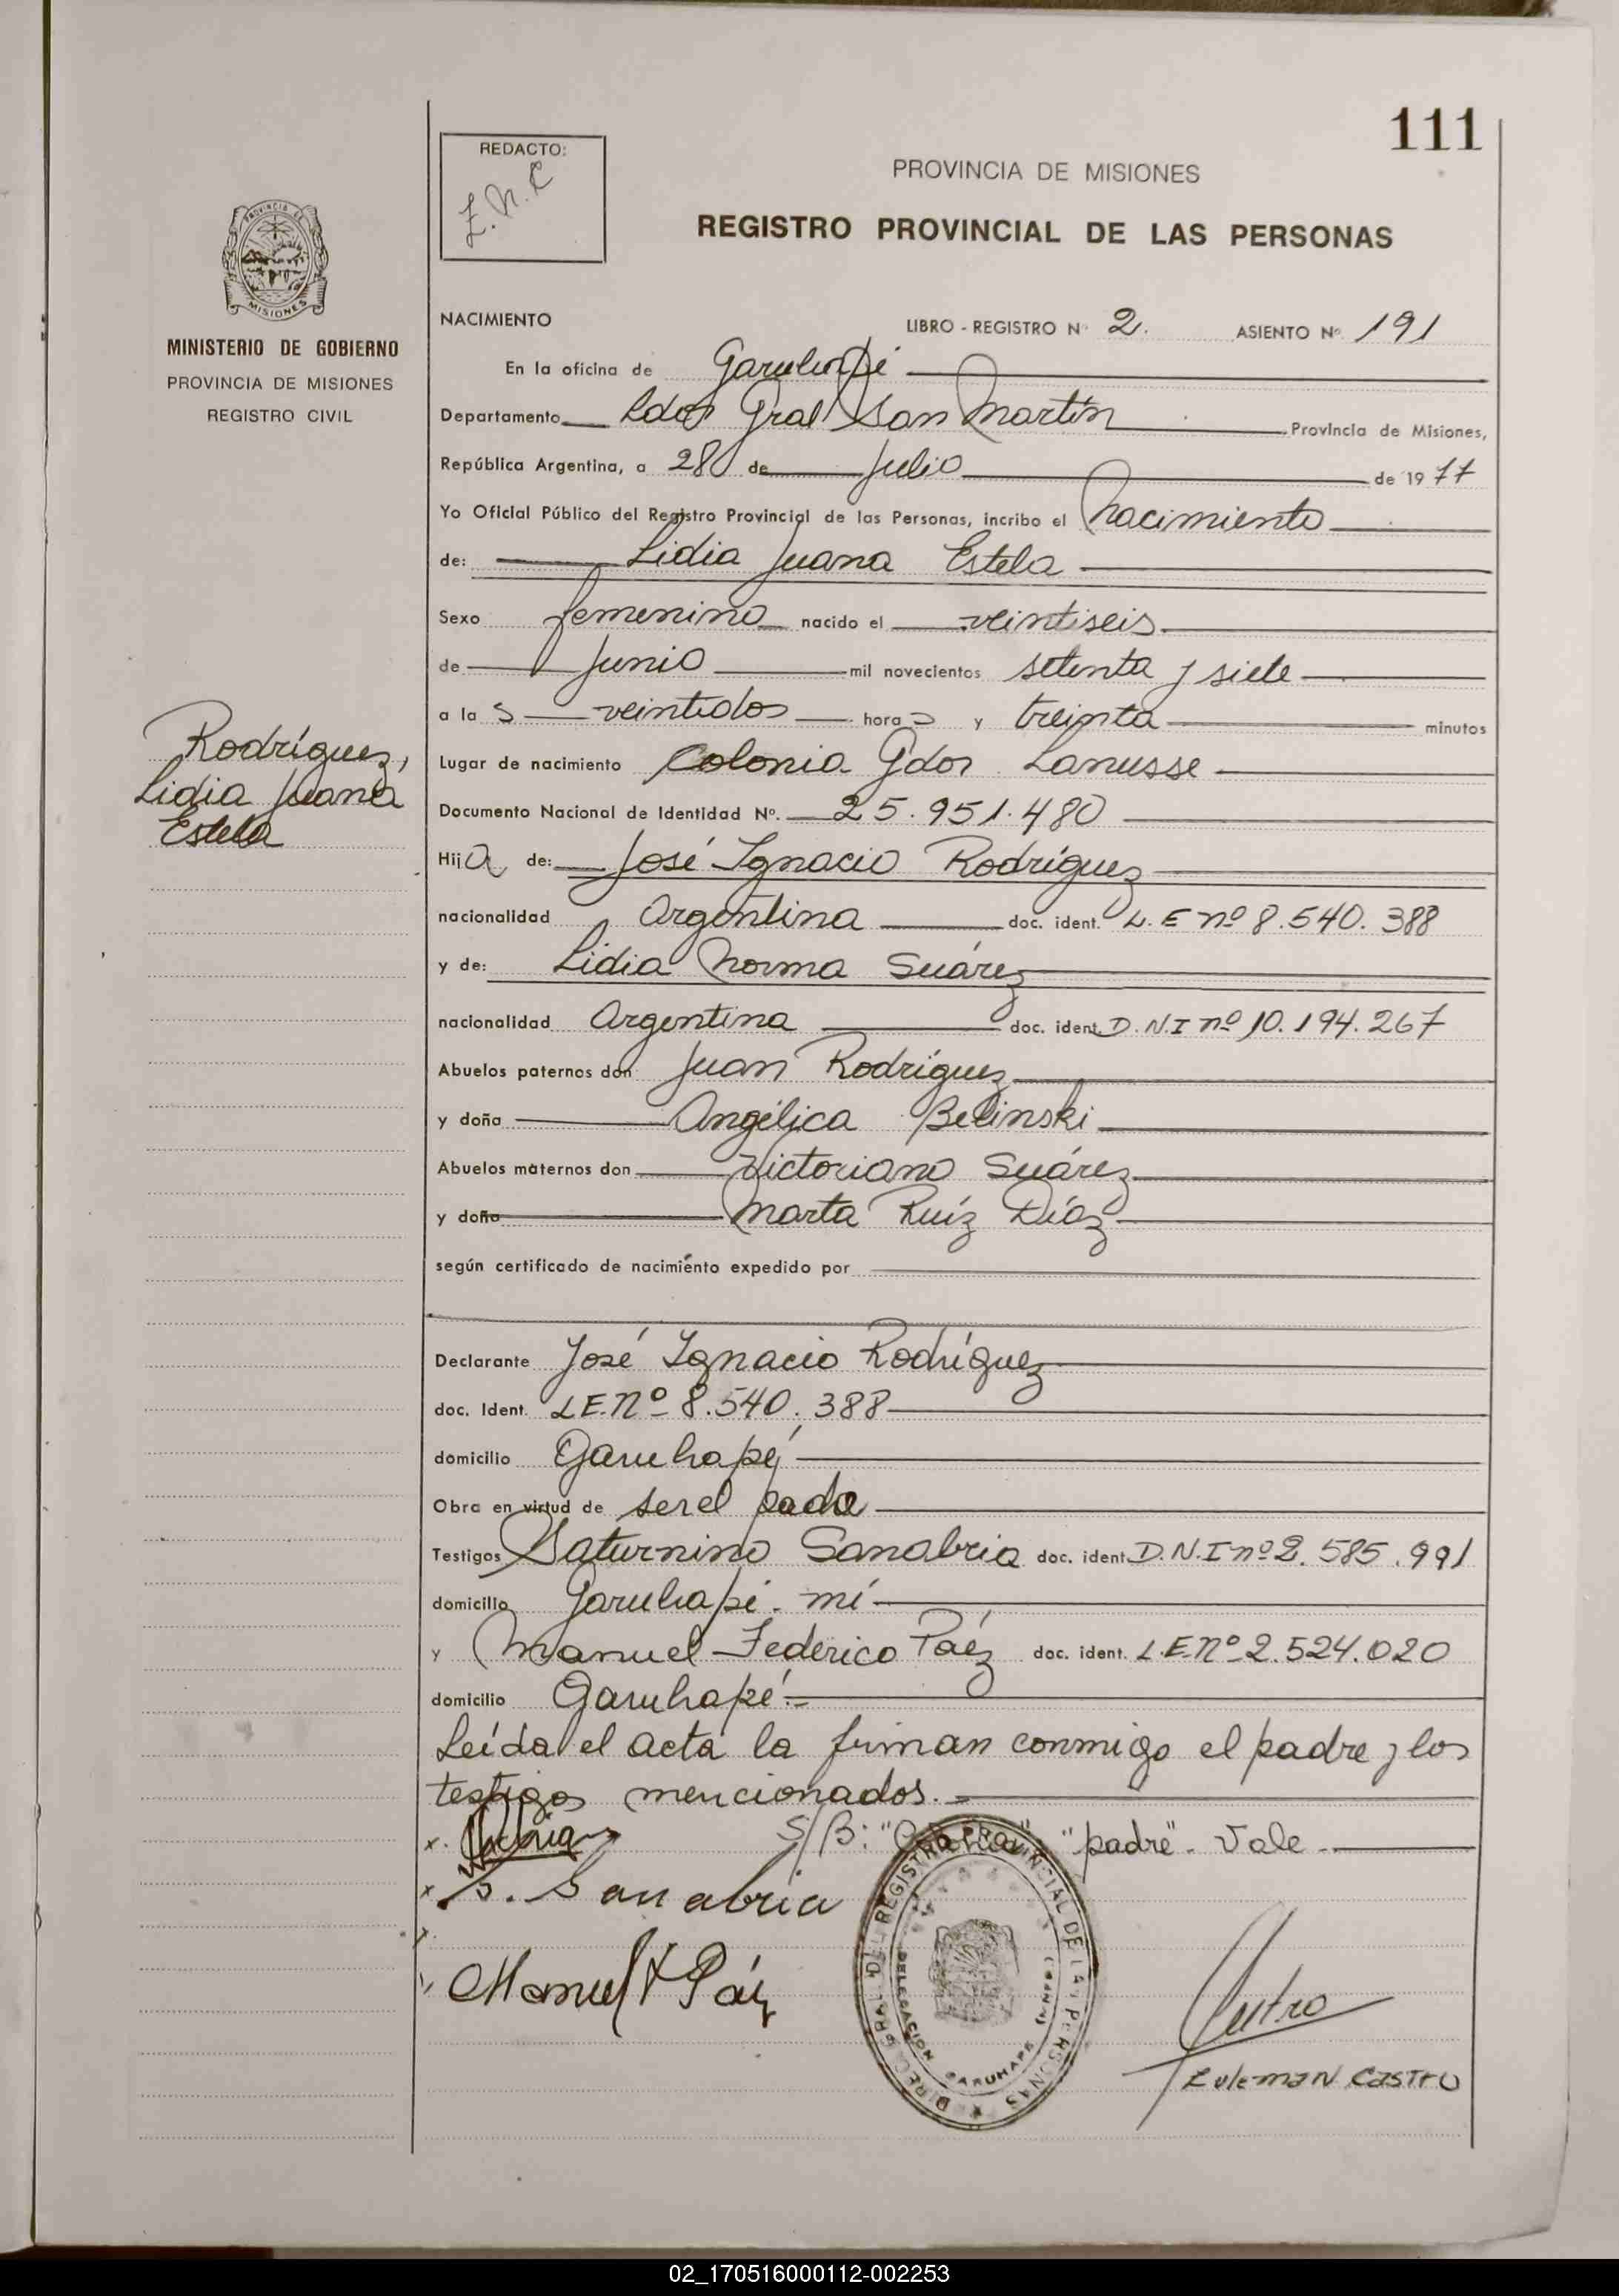 111
REDACTO:
Z.N.C
PROVINCIA DE MISIONES
REGISTRO PROVINCIAL DE LAS PERSONAS
PROVINCIA DE
MISIONES
MINISTERIO DE GOBIERNO
PROVINCIA DE MISIONES
REGISTRO CIVIL
NACIMIENTO LIBRO - REGISTRO Nº 2. ASIENTO Nº 191
En la oficina de Garuhapé
Departamento Ldor Gral San Martín Provincia de Misiones,
República Argentina, a 28 de Julio de 1977
Yo Oficial Público del Registro Provincial de las Personas, incribo el Nacimiento
de: Lidia Juana Estela
Sexo femenino nacido el veintiseis
de Junio mil novecientos setenta y siete
a la s veintidos hora s y treinta minutos
Rodríguez,
Lidia Juana
Estela
Lugar de nacimiento Colonia Gdor Lanusse
Documento Nacional de Identidad Nº. 25.951.480
Hija de: José Ignacio Rodríguez
nacionalidad Argentina doc. ident. L.E nº 8.540.388
y de: Lidia Norma Suárez
nacionalidad Argentina doc. ident. D.N.I nº 10.194.267
Abuelos paternos don Juan Rodríguez
y doña Angélica Belinski
Abuelos maternos don Victoriano Suárez
y doña Marta Ruíz Díaz
según certificado de nacimiento expedido por
Declarante José Ignacio Rodríguez
doc. Ident. L.E.Nº 8.540.388
domicilio Garuhapé
Obra en virtud de ser el padre
Testigos Saturnino Sanabria doc. ident. D.N.I nº 2.585.991
domicilio Garuhapé-mí
y Manuel Federico Paéz doc. ident. L.E.Nº 2.524.020
domicilio Garuhapé.-
Leída el acta la firman conmigo el padre y los
testigos mencionados.-
S/B: "padre". Vale.
S. Sanabria
Manuel F Páez
DIREC. GRAL. DEL REGISTRO PROVINCIAL DE LAS PERSONAS
DELEGACION GARUHAPE (MNES)
Castro
ZulemaN CASTRO
02_170516000112-002253